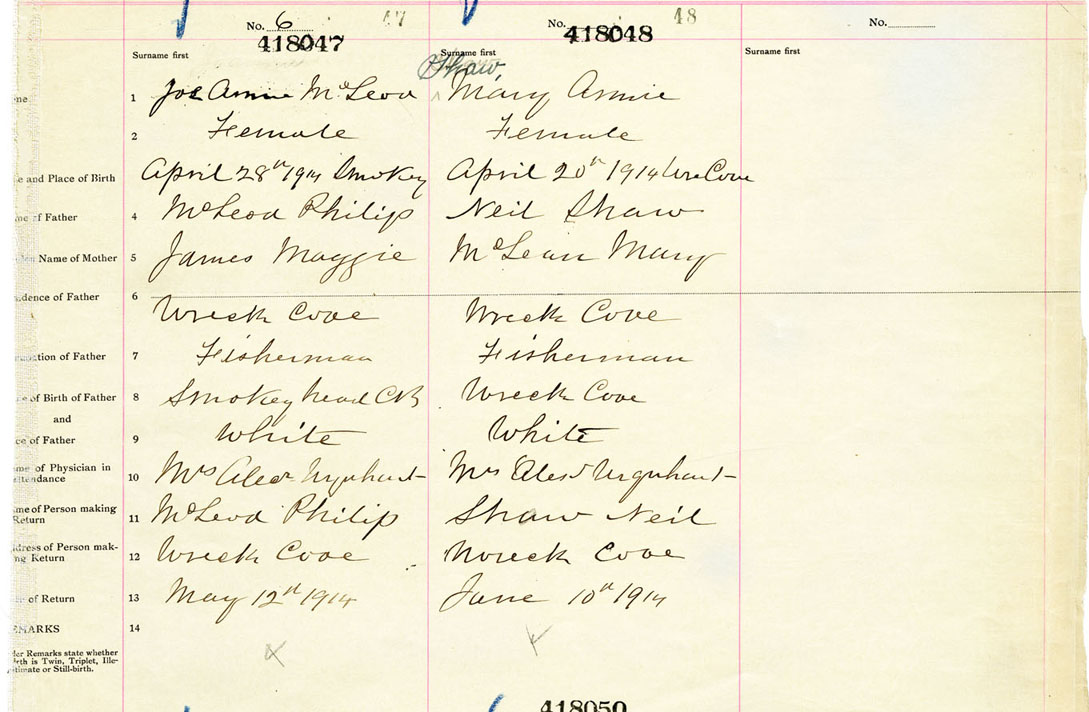 No. 6 47 No. 48 No.
418047 418048
Surname first Surname first Surname first
Shaw,
me 1 Joe Annie McLeod Mary Annie
2 Female Female
e and Place of Birth April 28th 1914 Smokey April 20th 1914 Wre Cove
me of Father 4 McLeod Philip Neil Shaw
Name of Mother 5 James Maggie McLean Mary
dence of Father 6 Wreck Cove Wreck Cove
ation of Father 7 Fisherman Fisherman
e of Birth of Father 8 Smokey head CB Wreck Cove
and
ce of Father 9 White White
me of Physician in
ttendance 10 Mrs Alexr Urquhart Mrs Alexr Urquhart
me of Person making
Return 11 McLeod Philip Shaw Neil
dress of Person mak-
ng Return 12 Wreck Cove Wreck Cove
of Return 13 May 12th 1914 June 10th 1914
EMARKS 14
der Remarks state whether
irth is Twin, Triplet, Ille-
itimate or Still-birth.
418050